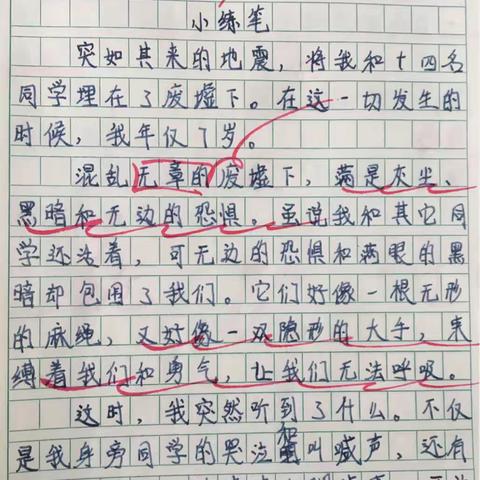 小练笔
突如其来的地震，将我和十四名
同学埋在了废墟下。在这一切发生的
时候，我年仅7岁。
混乱无章的废墟下，满是灰尘、
黑暗和无边的恐惧。虽说我和其它同
学还活着，可无边的恐惧和满眼的黑
暗却包围了我们。它们好像一根无形
的麻绳，又好像一双隐形的大手，束
缚着我们和勇气，让我们无法呼吸。
这时，我突然听到了什么。不仅
是我身旁同学的哭泣和叫喊声，还有